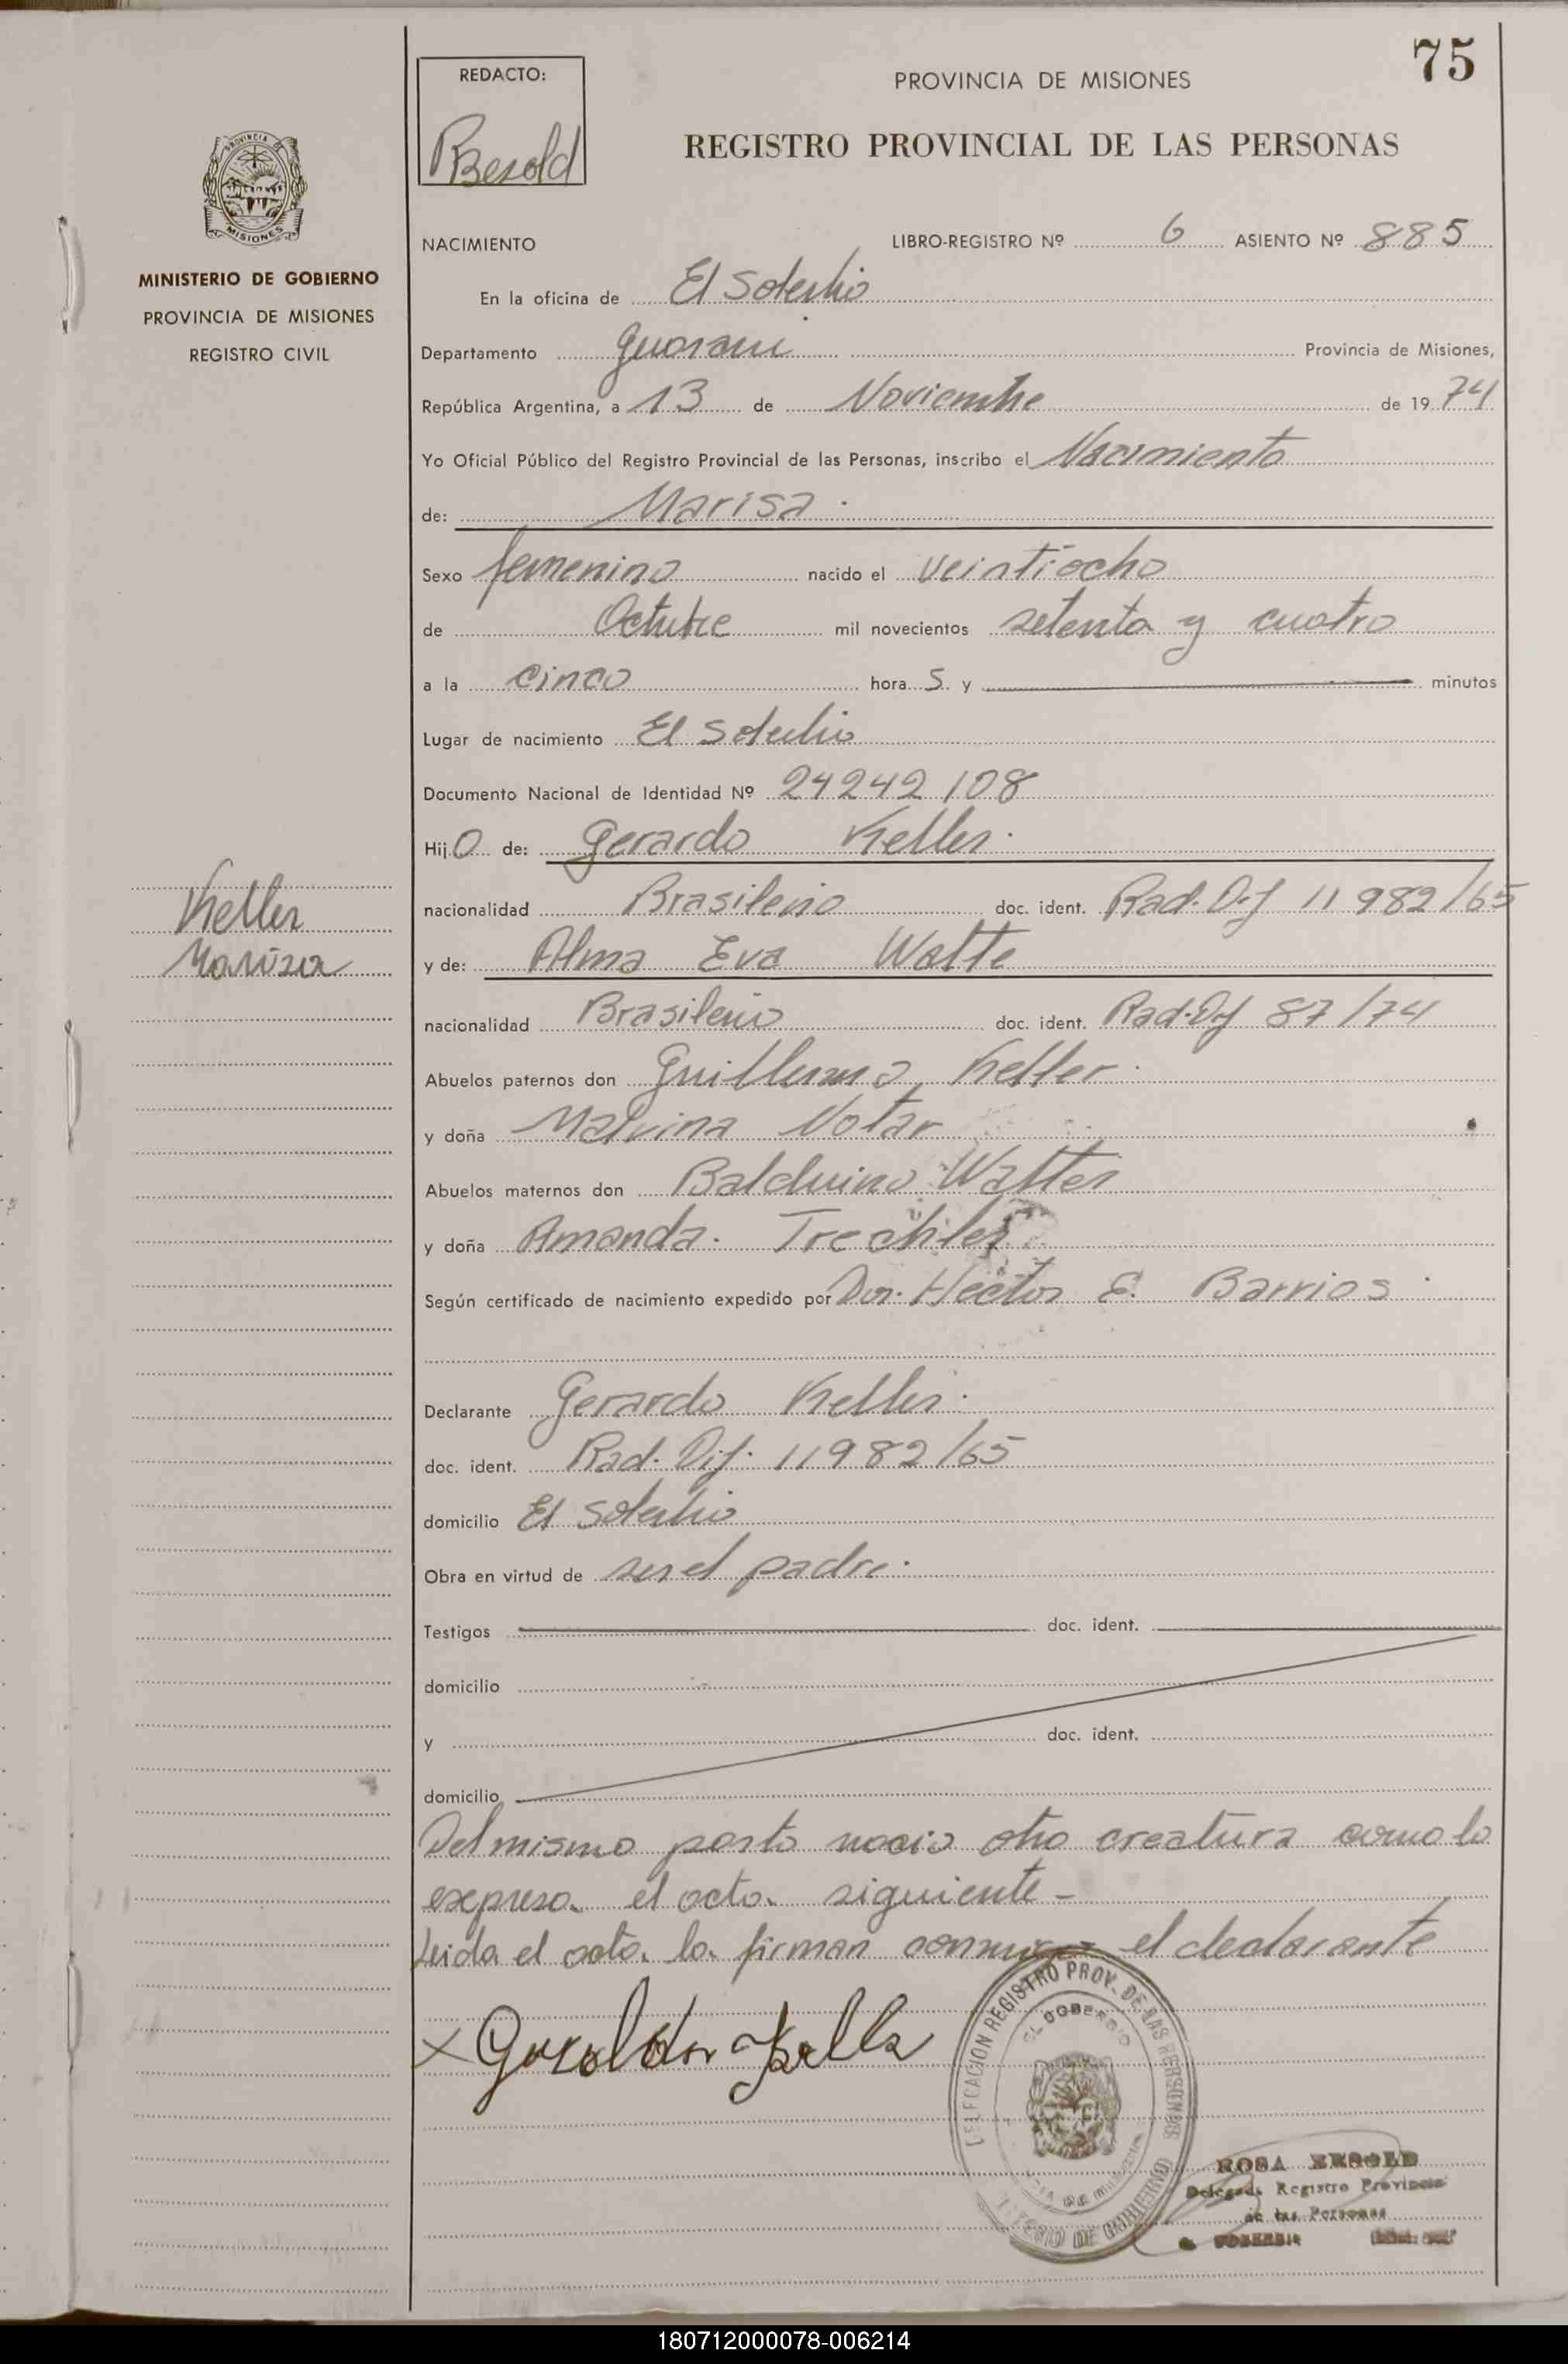 75
REDACTO:
PROVINCIA DE MISIONES
RBesold
REGISTRO PROVINCIAL DE LAS PERSONAS
PROVINCIA
MISIONES
MINISTERIO DE GOBIERNO
PROVINCIA DE MISIONES
REGISTRO CIVIL
NACIMIENTO
LIBRO-REGISTRO Nº 6 ASIENTO Nº 885
En la oficina de El Soberbio
Departamento Guarani Provincia de Misiones,
República Argentina, a 13 de Noviembre de 1974
Yo Oficial Público del Registro Provincial de las Personas, inscribo el Nacimiento
de: Marisa.
Sexo femenino nacido el veintiocho
de Octubre mil novecientos setenta y cuatro
a la cinco hora S y minutos
Lugar de nacimiento El Soberbio
Documento Nacional de Identidad Nº 24242108
Hij O de: Gerardo Keller.
nacionalidad Brasileño doc. ident. Rad. Def 11982/65
Keller
Marisa
y de: Alma Eva Walte
nacionalidad Brasileño doc. ident. Rad. Def 87/74
Abuelos paternos don Guillermo Keller.
y doña Malvina Notar
Abuelos maternos don Balduino Walter
y doña Amanda. Trechler
Según certificado de nacimiento expedido por Dr. Hector E. Barrios.
Declarante Gerardo Keller.
doc. ident. Rad. Def. 11982/65
domicilio El Soberbio
Obra en virtud de ser el padre.
Testigos doc. ident.
domicilio
y doc. ident.
domicilio
Del mismo parto nacio otra creatura como lo
expresa el acta siguiente -
Leida el acta la firman conmigo el declarante
x Keller
DELEGACION REGISTRO PROV. DE LAS PERSONAS
EL SOBERBIO
MINISTERIO DE GOBIERNO
ROSA BESOLD
Delegada Registro Provincial
de las Personas
180712000078-006214